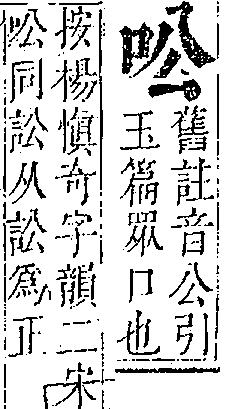 吆
舊註音公引
玉篇眾口也
按楊愼奇字韻二宋
吆同訟从訟爲正